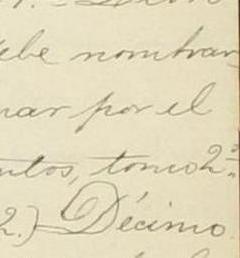 ebe nombrar
nar por el
ntos, tomo 2º
2.) Décimo